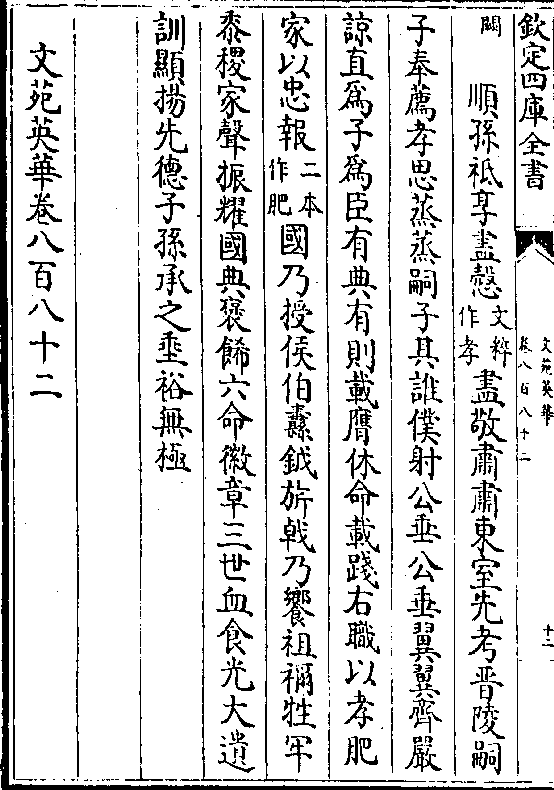 欽定四庫全書
文苑英華
卷八百八十二
十二
闕 順孫祗享盡慤文粹作孝盡敬肅肅東室先考晉陵嗣
子奉薦孝思蒸蒸嗣子其誰僕射公垂公垂翼翼齊嚴
諒直爲子爲臣有典有則載膺休命載踐右職以孝肥
家以忠報二本作肥國乃授侯伯纛鉞旂戟乃饗祖禰牲牢
黍稷家聲振耀國典襃餙六命徽章三世血食光大遺
訓顯揚先德子孫承之垂裕無極
文苑英華卷八百八十二